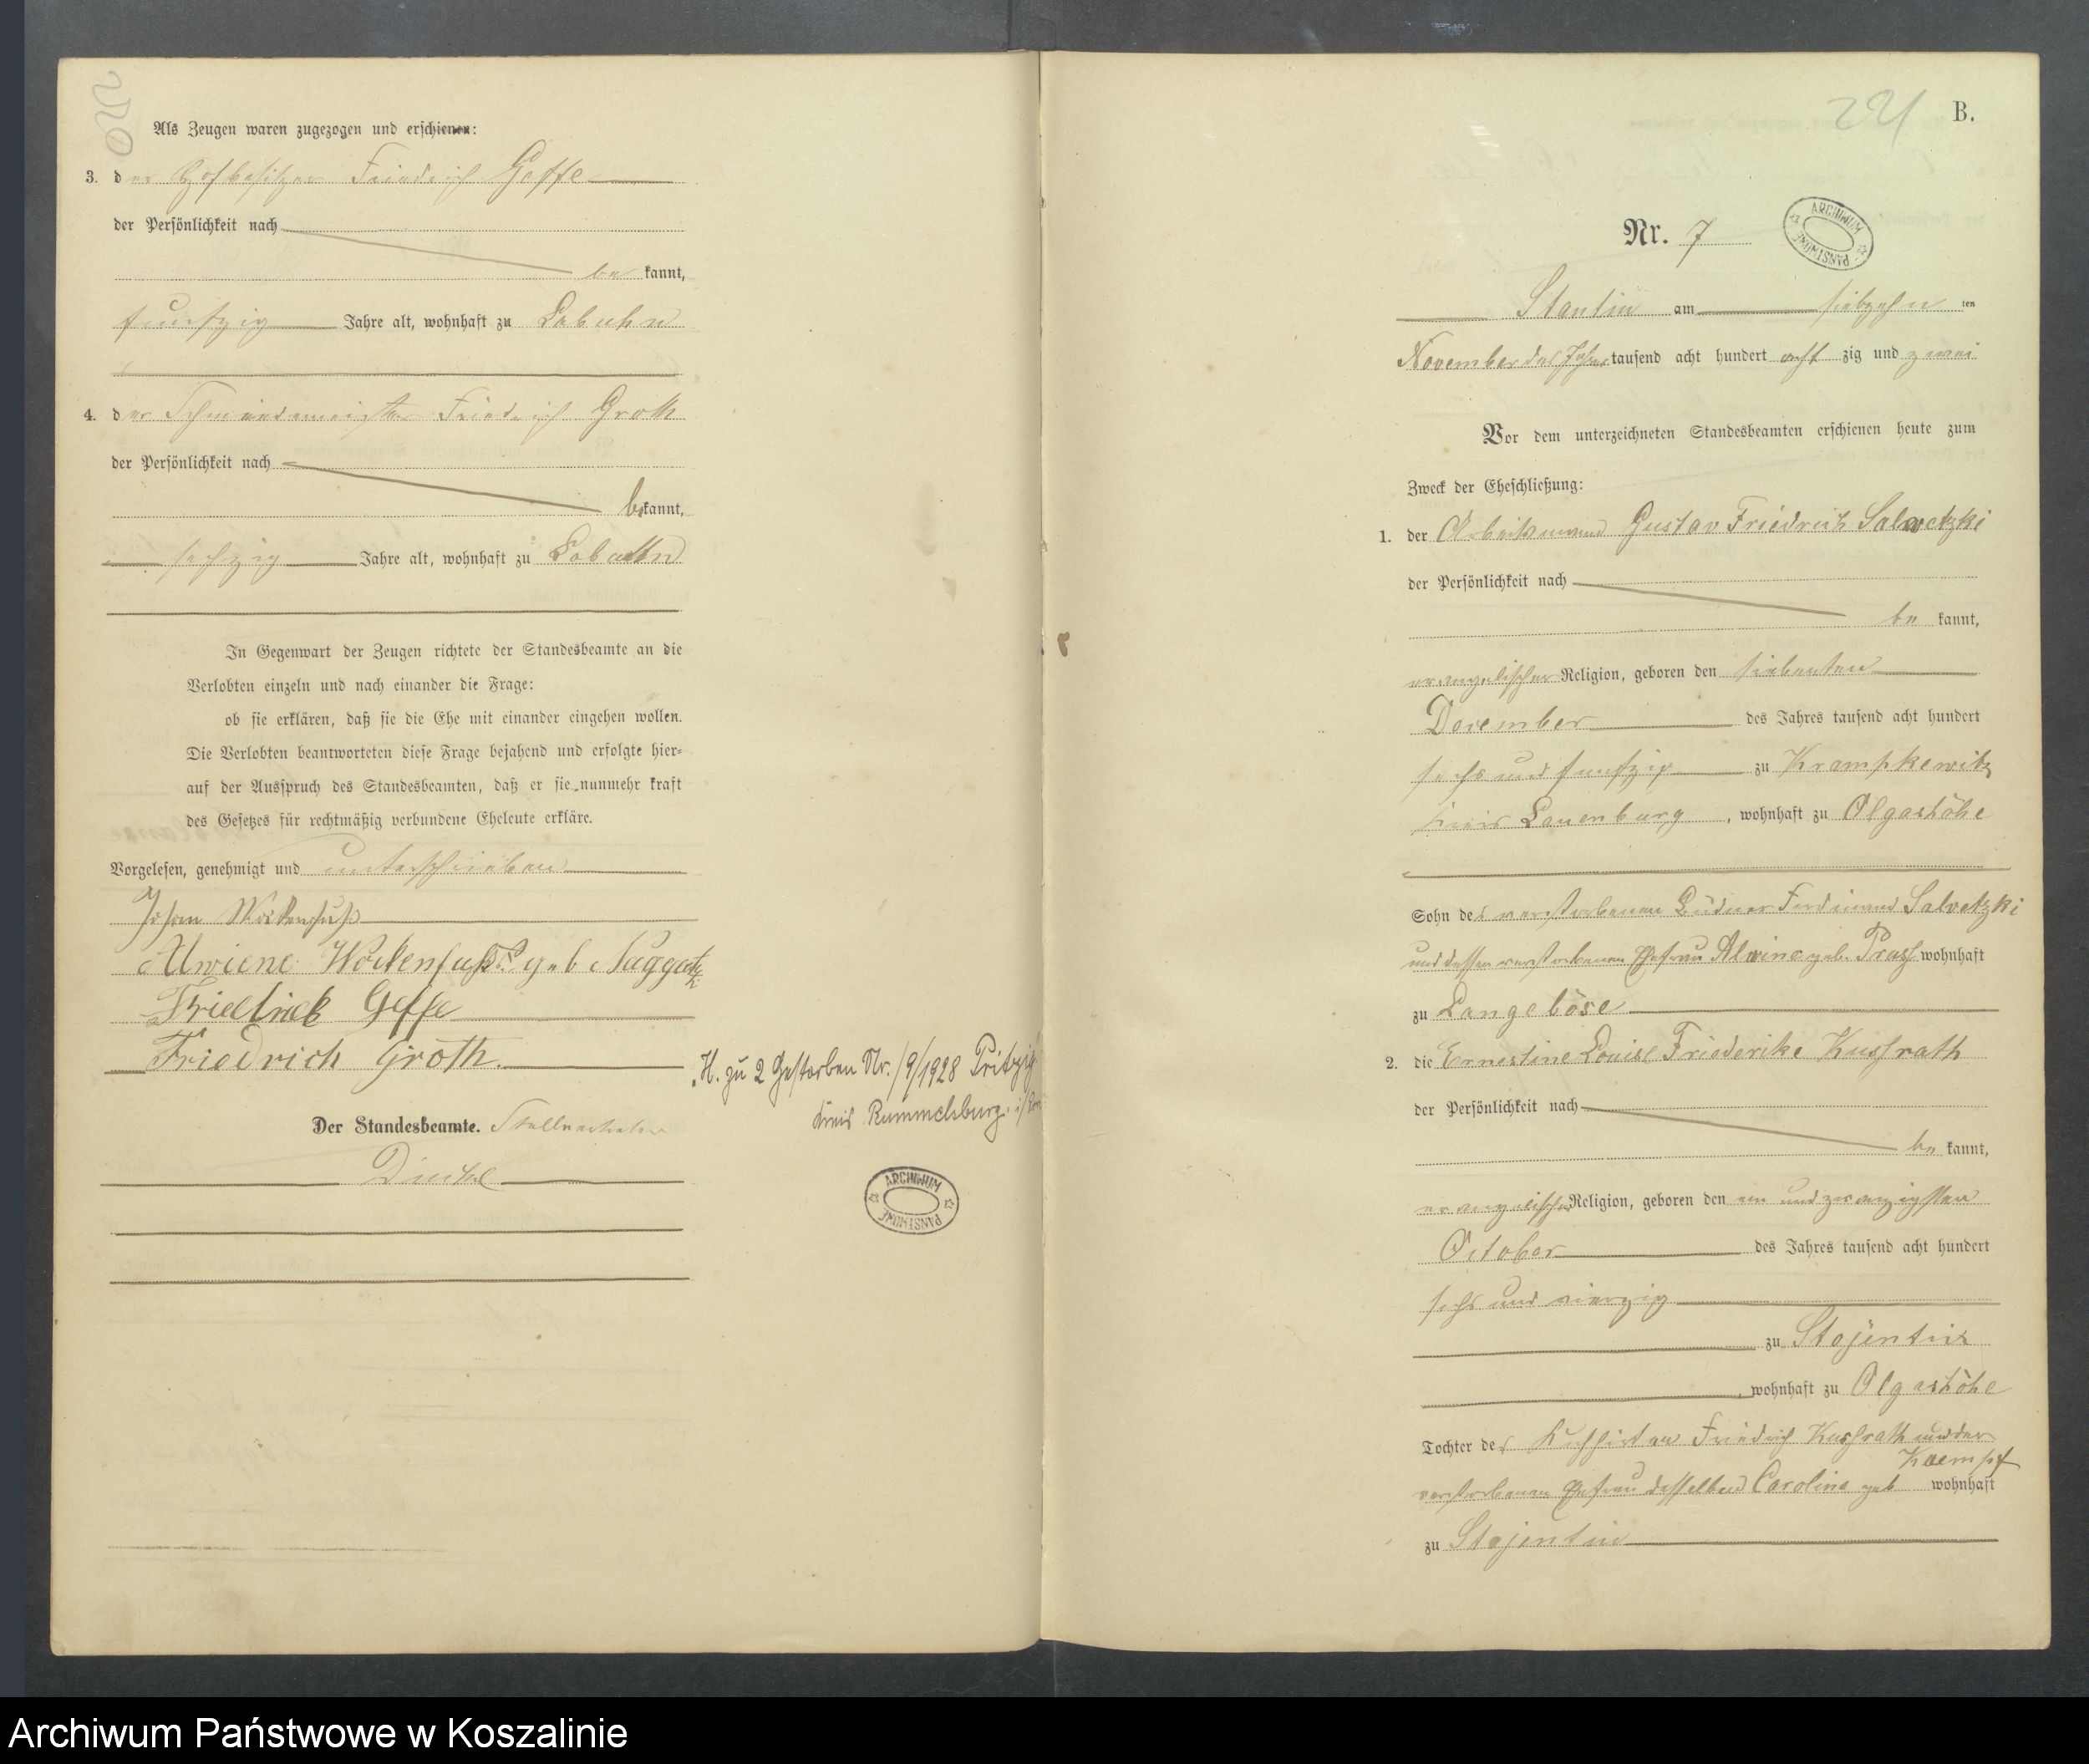 Als Zeugen waren zugezogen und erschienen:
3. der Hofbesitzer Friedrich Geffe
der Persönlichkeit nach
be kannt,
funfzig Jahre alt, wohnhaft zu Labuhn
4. der Schmiedemeister Friedrich Groth
der Persönlichkeit nach
bekannt,
sechzig Jahre alt, wohnhaft zu Labuhn
In Gegenwart der Zeugen richtete der Standesbeamte an die
Verlobten einzeln und nach einander die Frage:
ob sie erklären, daß sie die Ehe mit einander eingehen wollen.
Die Verlobten beantworteten diese Frage bejahend und erfolgte hier-
auf der Ausspruch des Standesbeamten, daß er sie nunmehr kraft
des Gesetzes für rechtmäßig verbundene Eheleute erkläre.
Vorgelesen, genehmigt und unterschrieben
Johan Wockenfuß
Alwiene Wockenfuß geb Naggatz
Friedrick Geffe
Friedrich Groth.
H. zu 2 Gestorben Nr. 19/1928 Pritzig
Kreis Rummelsburg i/Pom
Der Standesbeamte. Stellvertreter
ARCHIWUM PAŃSTWOWE
221 B.
Nr. 7
ARCHIWUM PAŃSTWOWE
Stantin am siebzehn ten
November des Jahres tausend acht hundert acht zig und zwei
Vor dem unterzeichneten Standesbeamten erschienen heute zum
Zweck der Eheschließung:
1. der Arbeitsmann Gustav Friedrich Salwetzki
der Persönlichkeit nach
be kannt,
evangelischer Religion, geboren den siebenten
December des Jahres tausend acht hundert
sechs und funfzig zu Krampkewitz
Kreis Lauenburg, wohnhaft zu Olgashöhe
Sohn des verstorbenen Büdner Ferdinand Salvetzki
und dessen verstorbenen Ehefrau Alwine geb. Prass wohnhaft
zu Langeböse
2. die Ernestine Louise Friederike Kussrath
der Persönlichkeit nach
be kannt,
evangelischer Religion, geboren den ein und zwanzigsten
October des Jahres tausend acht hundert
sechs und vierzig
zu Stojentin
wohnhaft zu Olgashöhe
Tochter des Kuhhirten Friedrich Kussrath und der
verstorbenen Ehefrau desselben Caroline geb Kaempf wohnhaft
zu Stojentin
Archiwum Państwowe w Koszalinie